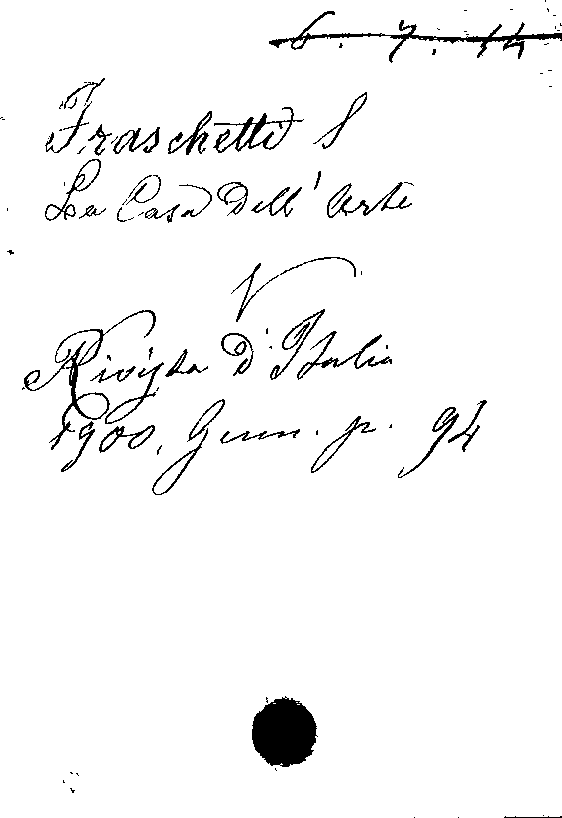 6. 7. 14
Fraschetti S
La Casa Dell' Arte
V
Rivista D' Italia
1900, Genn. p. 94